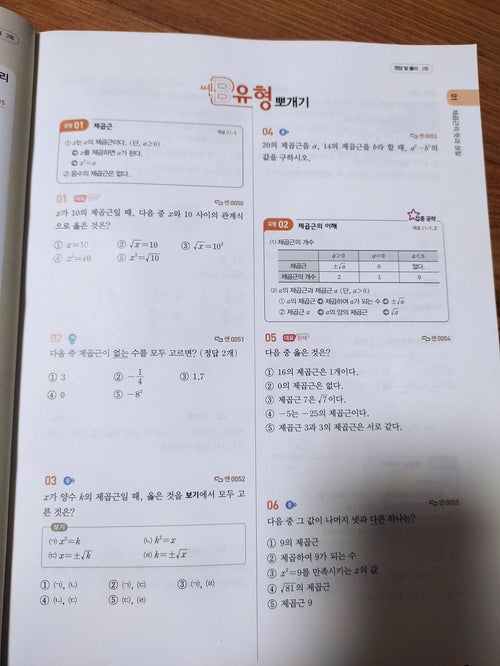 정답 및 풀이 2쪽
쎈 B유형 뽀개기
01 제곱근의 뜻과 성질
유형 01 제곱근 개념 01-1
① x는 a의 제곱근이다. (단, a≥0)
➡ x를 제곱하면 a가 된다.
➡ x²=a
② 음수의 제곱근은 없다.
01 대표 문제 쎈 0050
x가 10의 제곱근일 때, 다음 중 x와 10 사이의 관계식
으로 옳은 것은?
① x=10 ② √x=10 ③ √x=10²
④ x²=10 ⑤ x²=√10
02 쎈 0051
다음 중 제곱근이 없는 수를 모두 고르면? (정답 2개)
① 3 ② -1/4 ③ 1.7
④ 0 ⑤ -8²
03 쎈 0052
x가 양수 k의 제곱근일 때, 옳은 것을 보기에서 모두 고
른 것은?
보기
(ㄱ) x²=k (ㄴ) k²=x
(ㄷ) x=±√k (ㄹ) k=±√x
① (ㄱ), (ㄴ) ② (ㄱ), (ㄷ) ③ (ㄱ), (ㄹ)
④ (ㄴ), (ㄷ) ⑤ (ㄷ), (ㄹ)
04 쎈 0053
20의 제곱근을 a, 14의 제곱근을 b라 할 때, a²-b²의
값을 구하시오.
집중 공략
유형 02 제곱근의 이해 개념 01-1, 2
(1) 제곱근의 개수
a>0 a=0 a<0
제곱근 ±√a 0 없다.
제곱근의 개수 2 1 0
(2) a의 제곱근과 제곱근 a (단, a>0)
① a의 제곱근 ➡ 제곱하여 a가 되는 수 ➡ ±√a
② 제곱근 a ➡ a의 양의 제곱근 ➡ √a
05 대표 문제 쎈 0054
다음 중 옳은 것은?
① 16의 제곱근은 1개이다.
② 0의 제곱근은 없다.
③ 제곱근 7은 √7이다.
④ -5는 -25의 제곱근이다.
⑤ 제곱근 3과 3의 제곱근은 서로 같다.
06 쎈 0055
다음 중 그 값이 나머지 넷과 다른 하나는?
① 9의 제곱근
② 제곱하여 9가 되는 수
③ x²=9를 만족시키는 x의 값
④ √81의 제곱근
⑤ 제곱근 9